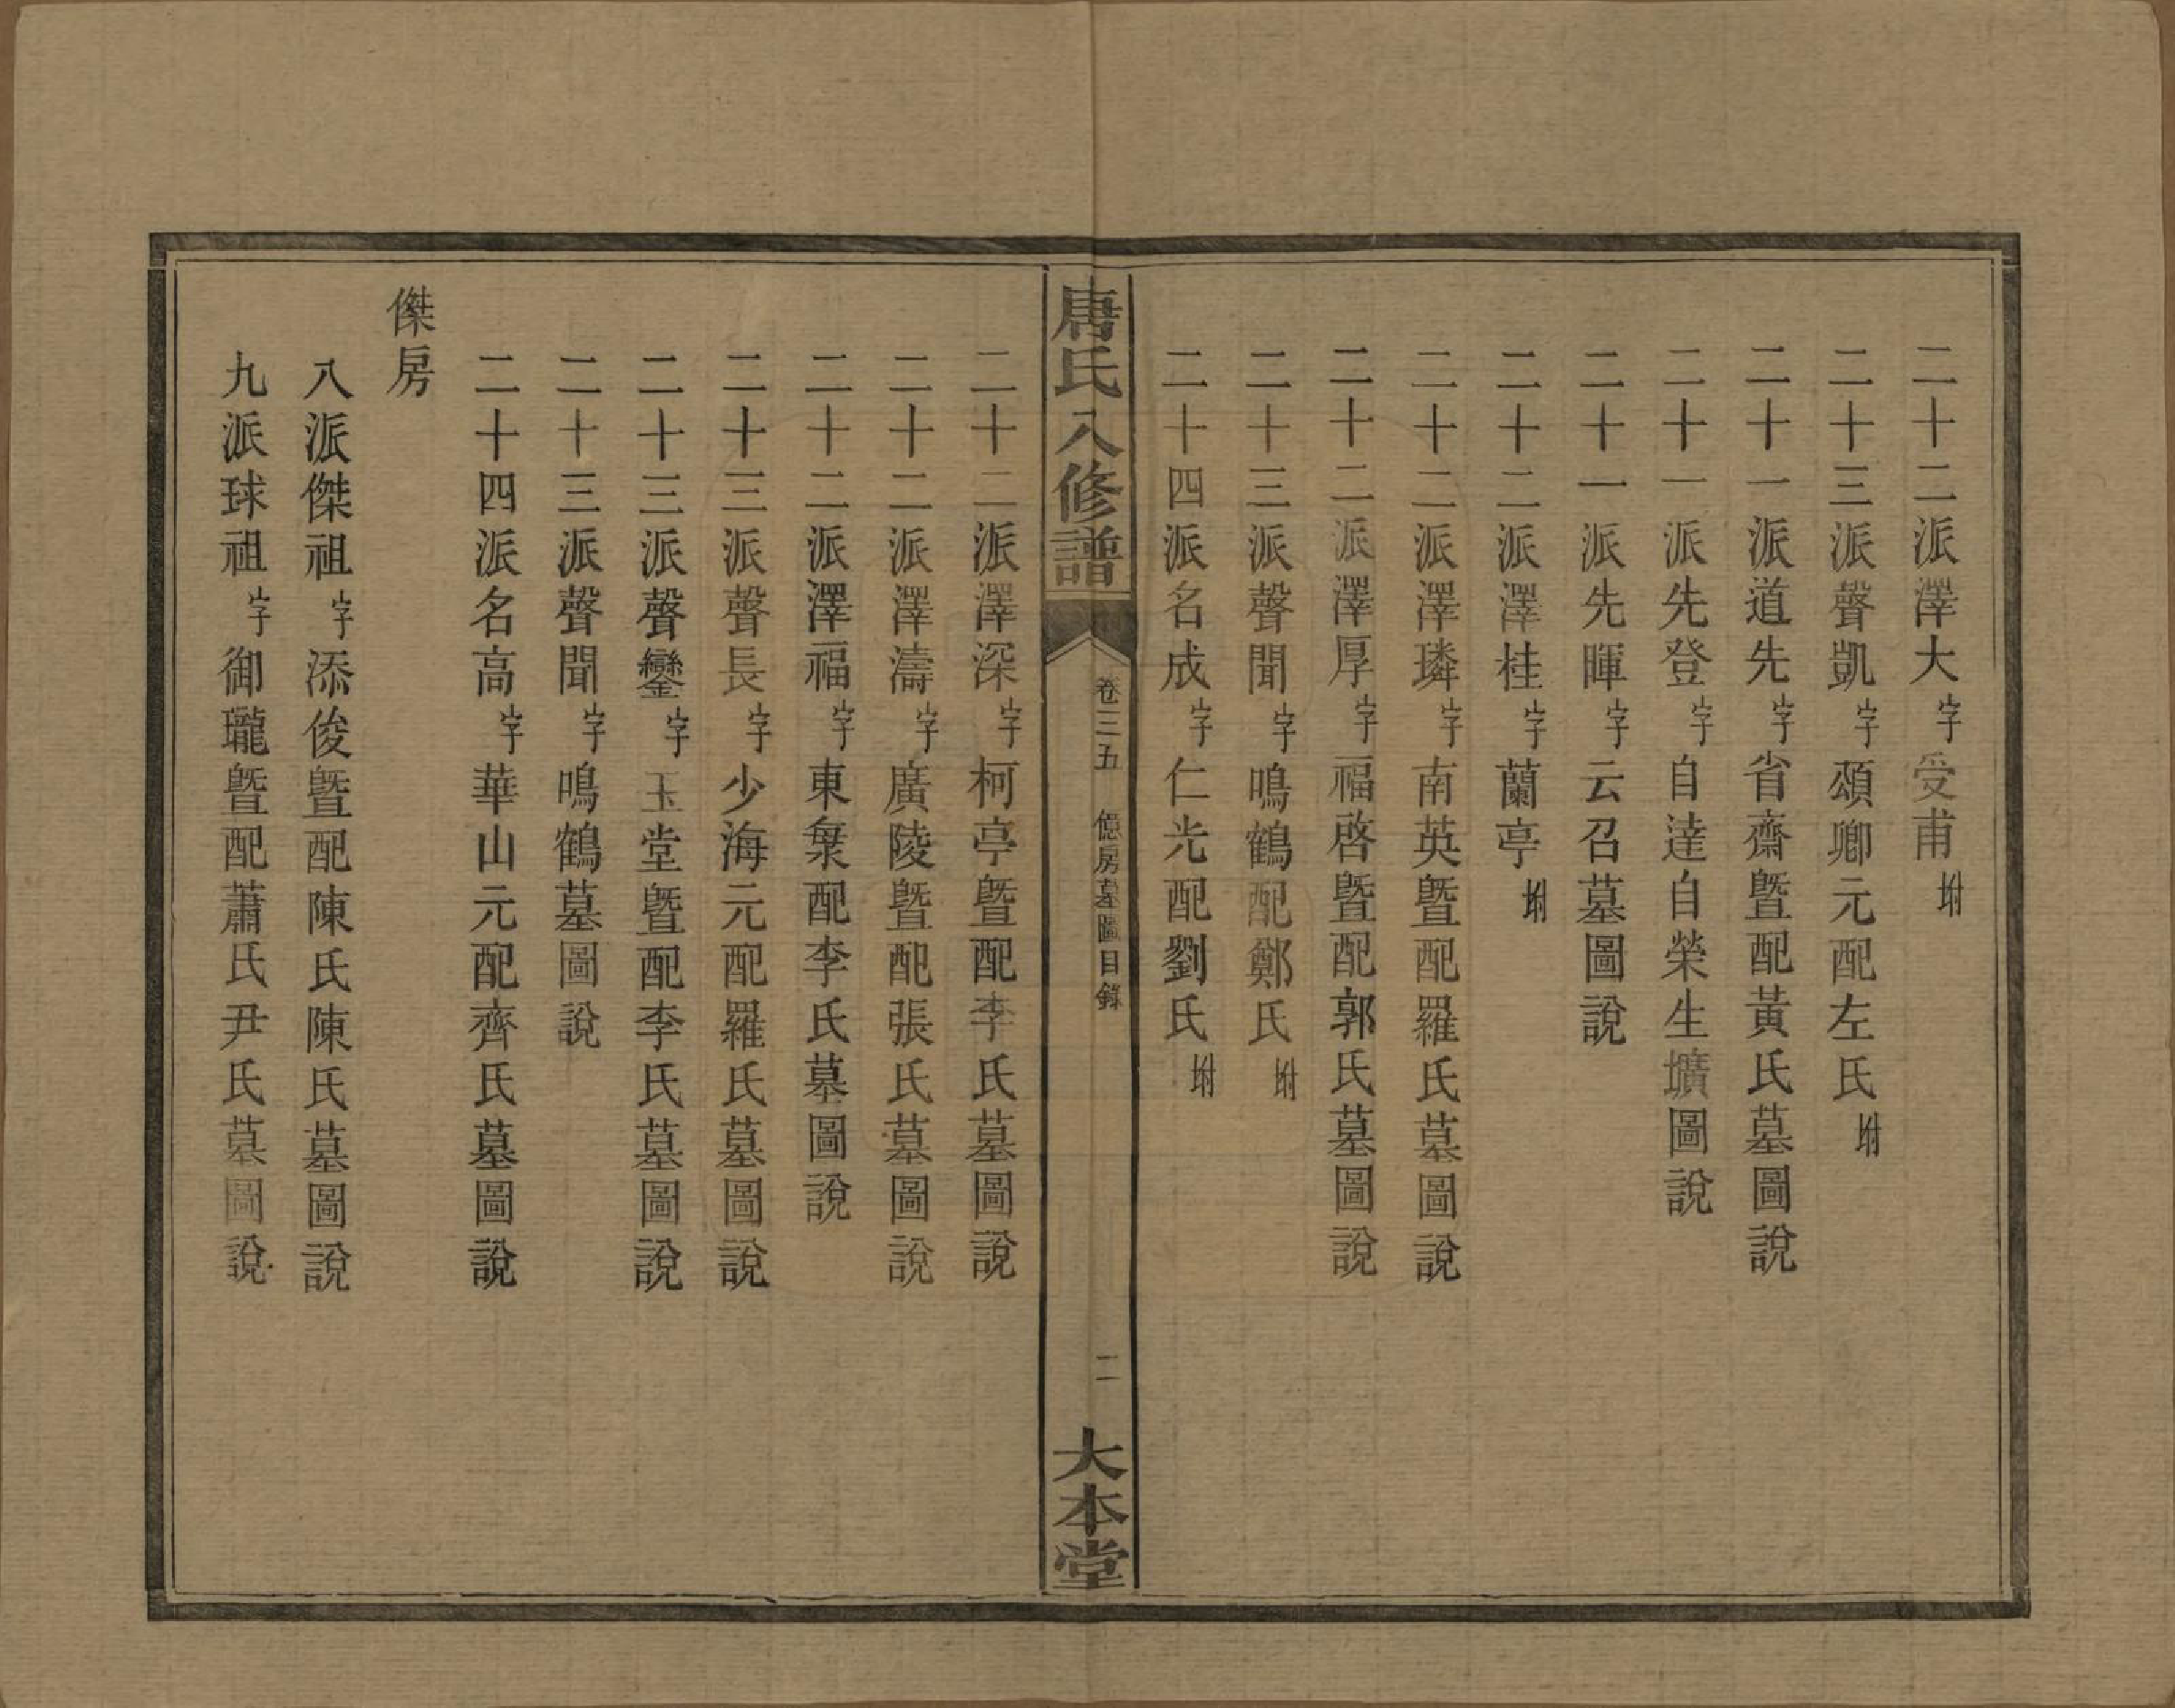 二十二派澤大字受甫附
二十三派聲凱字頌卿元配左氏附
二十一派道先字省齋暨配黃氏墓圖說
二十一派先登字自達自榮生壙圖說
二十一派先暉字云召墓圖說
二十二派澤桂字蘭亭附
二十二派澤璘字南英暨配羅氏墓圖說
二十二派澤厚字福啓暨配郭氏墓圖說
二十三派聲聞字鳴鶴配鄭氏附
二十四派名成字仁光配劉氏附
唐氏八修譜 卷三五 房墓圖目錄 二 大本堂
二十二派澤深字柯亭暨配李氏墓圖說
二十二派澤濤字廣陵暨配張氏墓圖說
二十二派澤福字東暨配李氏墓圖說
二十三派聲長字少海元配羅氏墓圖說
二十三派聲鑾字玉堂暨配李氏墓圖說
二十三派聲聞字鳴鶴墓圖說
二十四派名高字華山元配齊氏墓圖說
傑房
八派傑祖字添俊暨配陳氏陳氏墓圖說
九派球祖字御瓏暨配蕭氏尹氏墓圖說